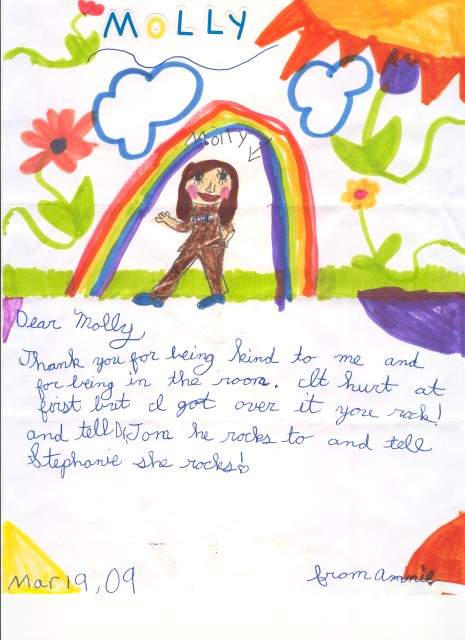 MOLLY
Molly
Dear Molly
Thank you for being kind to me and
for being in the room. It hurt at
first but I got over it you rock!
and tell Dr Tom he rocks to and tell
Stephanie she rocks!
Mar 19, 09
from Annie